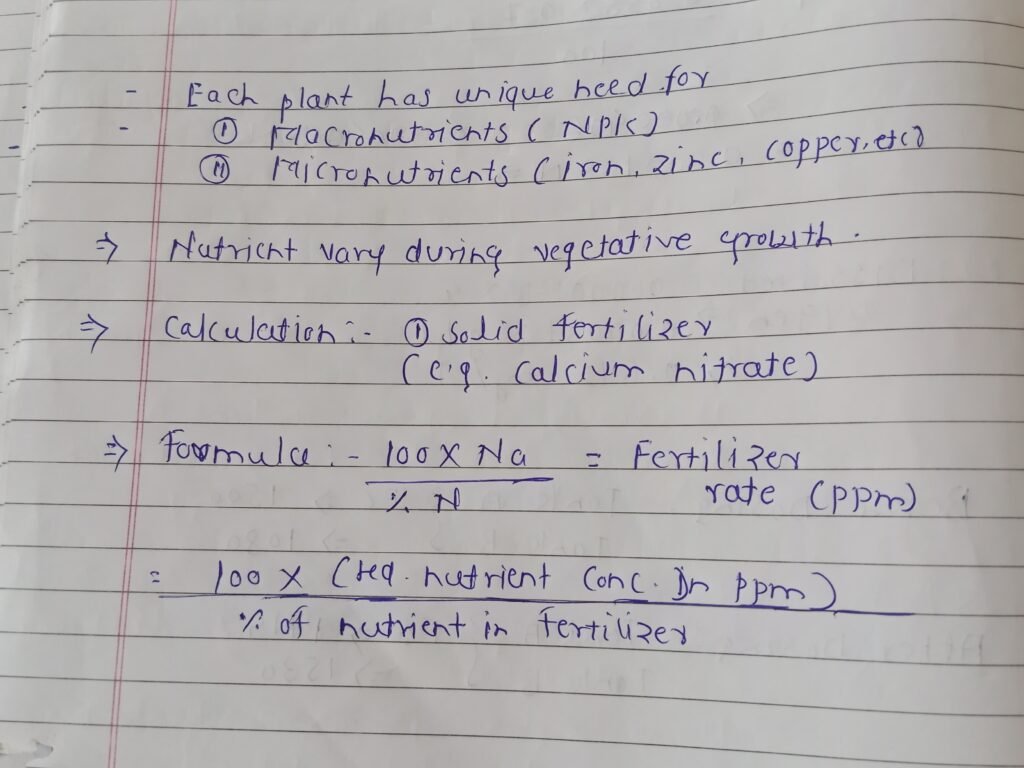 - Each plant has unique need for
- Ⓘ Macronutrients (NPK)
Ⓘⓘ Micronutrients (iron, zinc, copper, etc)
⇒ Nutrient vary during vegetative growth.
⇒ Calculation :- Ⓘ Solid fertilizer
(e.g. calcium nitrate)
⇒ Formula :- 100 X Na = Fertilizer
% N rate (ppm)
= 100 X (req. nutrient conc. In ppm)
% of nutrient in fertilizer